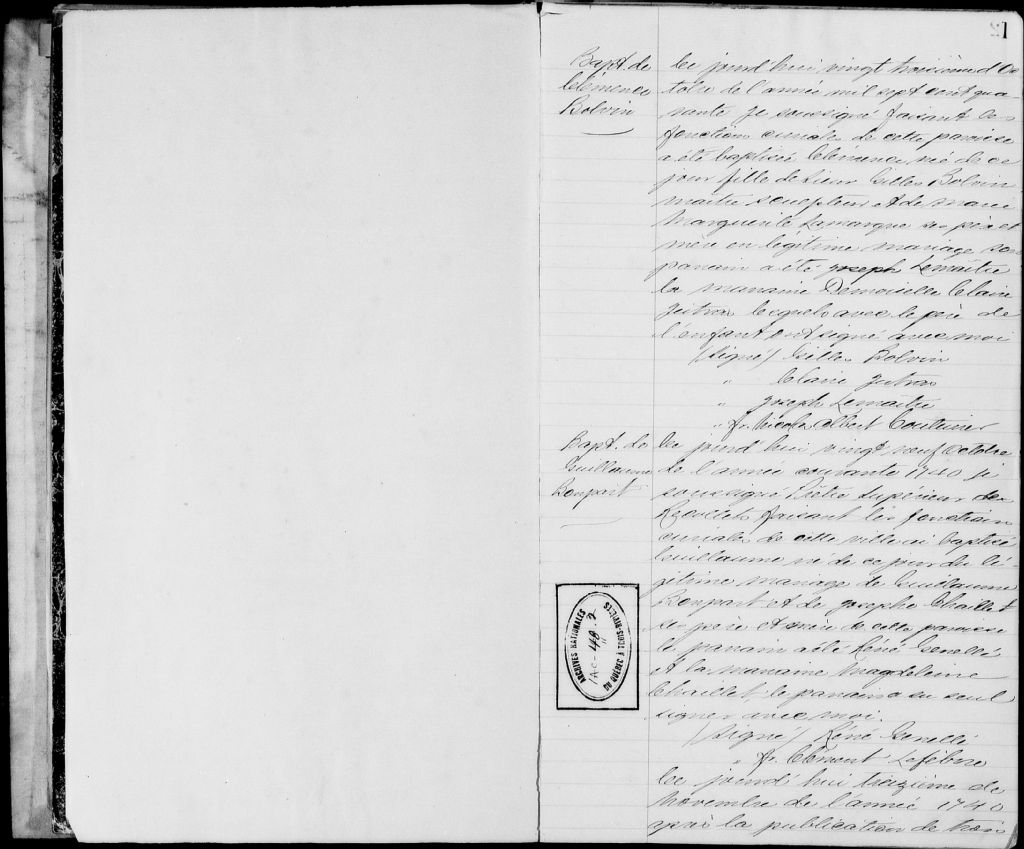 1
Bapt. de
Clémence
Bolvin
Ce jourd'hui vingt troisième d'Oc
tobre de l'année mil sept cent qua
rante je soussigné faisant les
fonctions curiales de cette paroisse
a été baptisée Clémence, née de ce
jour fille de Sieur Gilles Bolvin
maître sculpteur et de Marie
Marguerite Lamarque ses père et
mère en légitime mariage son
parrain a été Joseph Lemaître
la marraine Demoiselle Claire
Jutras lesquels avec le père de
l'enfant ont signé avec moi
(Signé) Gilles Bolvin
" Claire Jutras
" Joseph Lemaître
" fr. Nicolas Albert Couturier
Bapt. de
Guillaume
Bonpart
Ce jourd'hui vingt neuf Octobre
de l'année courante 1740 je
soussigné Prêtre Supérieur des
Récollets faisant les fonctions
curiales de cette ville ai baptisé
Guillaume né de ce jour du lé-
gitime mariage de Guillaume
Bonpart et de Josephe Chaillet
ses père et mère de cette paroisse
le parrain a été René
et la marraine Magdeleine
Chaillet, le parrain a su seul
signer avec moi.
(Signé) René
" fr. Clément Lefebvre
Ce jourd'hui treizième de
Novembre de l'année 1740
après la publication de trois
ARCHIVES NATIONALES
1AC-48-2
DU QUÉBEC À TROIS-RIVIÈRES